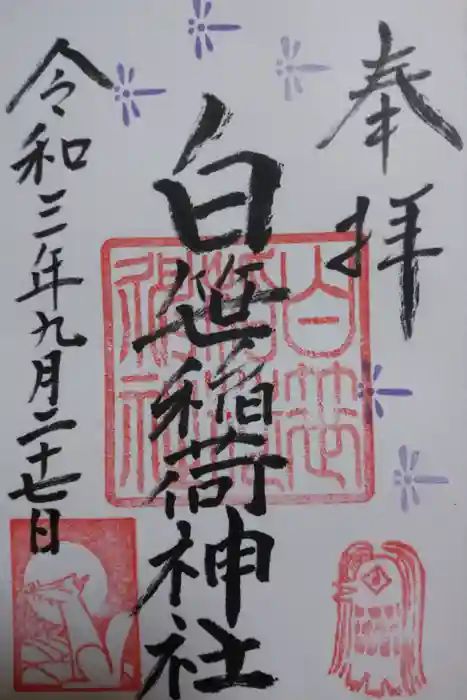 奉拝
白笹稲荷神社
令和三年九月二十七日